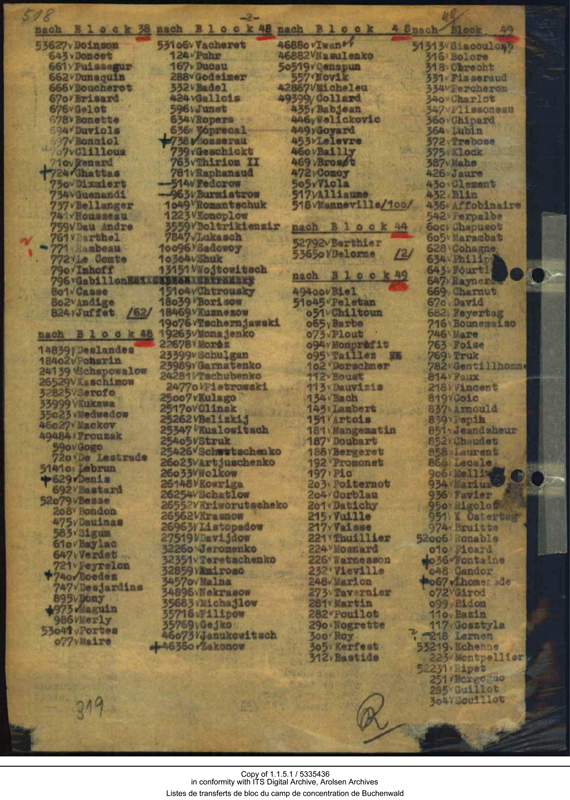 518
-2-
nach Block 38
53627 v Doinson
643 v Doncet
661 v Puissegur
662 v Dunaquin
666 v Boucherot
670 v Brisard
676 v Gelot
678 v Bonette
694 v Daviols
v Bonniol
v Cilloux
710 v Renard
724 v Ghattas
730 v Dixmiert
734 v Guenandi
737 v Bellanger
741 v Housseau
759 v Dau Andre
761 v Barthel
771 v Rambeau
772 v Le Comte
780 v Imhoff
796 v Gabillon
801 v Casse
802 v Andige
824 v Juffet /62/
nach Block 48
14839 v Deslandes
18402 v Pohsrin
24139 v Schapowalow
26529 v Kaschimow
32825 v Serofo
33999 v Kukawa
35023 v Medwedow
46027 v Mackov
49484 v Frouzak
590 v Gogo
720 v De Lestrade
51410 v Lebrun
629 v Denis
692 v Bastard
52079 v Besse
208 v Bondon
475 v Dauinas
583 v Sigum
610 v Baylac
647 v Verdet
721 v Peyrelon
740 v Boedes
747 v Desjardins
895 v Dony
973 v Maguin
986 v Merly
53041 v Portes
077 v Maire
nach Block 48
53106 v Vacheret
124 v Puhr
167 v Ducou
288 v Godeimer
332 v Badel
424 v Gallois
596 v Junet
634 v Ropers
636 v Koprecal
738 v Mosserau
739 v Geschickt
763 v Thirion II
781 v Raphanaud
514 v Fedorow
963 v Burmistrow
1049 v Romantschuk
1223 v Konoplow
3559 v Boltrikiensir
7847 v Lukasch
10096 v Sadowoy
10304 v Shuk
13151 v Wojtowitsch
15104 v Chtrousky
18039 v Borisow
18469 v Kusnezow
19076 v Tschernjawski
19263 v Monajenko
22678 v Morés
23399 v Schulgan
23989 v Garnatenko
24281 v Tschubenko
24770 v Pietrowski
25007 v Kulago
25170 v Olinsk
25262 v Belizkij
25347 v Kualowitsch
25405 v Struk
25426 v Schwutschenko
26023 v Artjuschenko
26033 v Wolkow
26148 v Kowriga
26254 v Schatlow
26552 v Kriworutscheko
26562 v Krasnow
26963 v Listopadow
27519 v Davijdow
32260 v Jeromenko
32351 v Teretschenko
32859 v Amiroso
34570 v Malna
34896 v Nekrasow
35683 v Michajlow
35716 v Filipow
35769 v Gejko
46073 v Janukowitsch
46360 v Zakonow
nach Block 48
46880 v Iwan
46882 v Hamulenko
50519 v Cenapun
557 v Novik
42867 v Micheleu
49399 v Collard
435 v Babjean
446 v Welickovic
449 v Goyard
453 v Lelevre
460 v Bailly
469 v Broset
472 v Comoy
505 v Viola
517 v Alliaume
518 v Manneville /100/
nach Block 44
52792 v Berthier
53650 v Delorme /2/
nach Block 49
49400 v Biel
51045 v Peletan
051 v Chiltoun
065 v Barbe
073 v Plout
094 v Monprofit
095 v Tailles
102 v Dorschner
112 v Houst
113 v Dauviris
134 v Bach
143 v Lambert
151 v Artois
181 v Mangematin
187 v Doubart
188 v Bergeret
192 v Promonet
197 v Pic
203 v Poiternot
204 v Corblau
201 v Datichy
215 v Vuille
217 v Vaisse
221 v Thuillier
224 v Mosnard
226 v Warnesson
232 v Vieville
248 v Marion
273 v Tavernier
281 v Martin
282 v Pouillot
290 v Nogrette
300 v Roy
305 v Kerfest
312 v Bastide
nach Block 49
51313 v Siacoulon
316 v Bolore
318 v Obrecht
331 v Fisseraud
334 v Percheron
340 v Charlot
347 v Plissoneau
360 v Chipard
364 v Lubin
372 v Trebose
375 v Klock
387 v Mahe
426 v Jaure
430 v Clement
432 v Blin
436 v Affobinaire
542 v Perpalbe
600 v Chapusot
605 v Marambat
628 v Cohagne
634 v Philip
643 v Fourti
647 v Rayner
669 v Charnut
670 v David
682 v Feyertag
716 v Bounemaiso
746 v Mare
763 Foise
769 v Truk
782 v Gentillhomme
814 v Faux
218 v Vincent
819 v Coic
837 v Arnould
839 v Pepih
851 v Jeandaheur
852 v Chaudet
858 v Laurent
866 v Lecale
906 v Mellin
934 v Mailux
936 v Favier
950 v Rigolo
951 v K Ostertag
974 v Bruitte
52006 v Ronable
010 v Picard
036 v Fontaine
048 v Candor
067 v Lhomerode
072 v Girod
099 v Bidon
110 v Bazin
117 v Gosztyla
218 Lernen
53219 v Echenne
223 v Montpellier
52231 v Ripet
251 v Borgogno
285 v Guillot
304 v Gouillot
319
R
Copy of 1.1.5.1 / 5335436
in conformity with ITS Digital Archive, Arolsen Archives
Listes de transferts de bloc du camp de concentration de Buchenwald